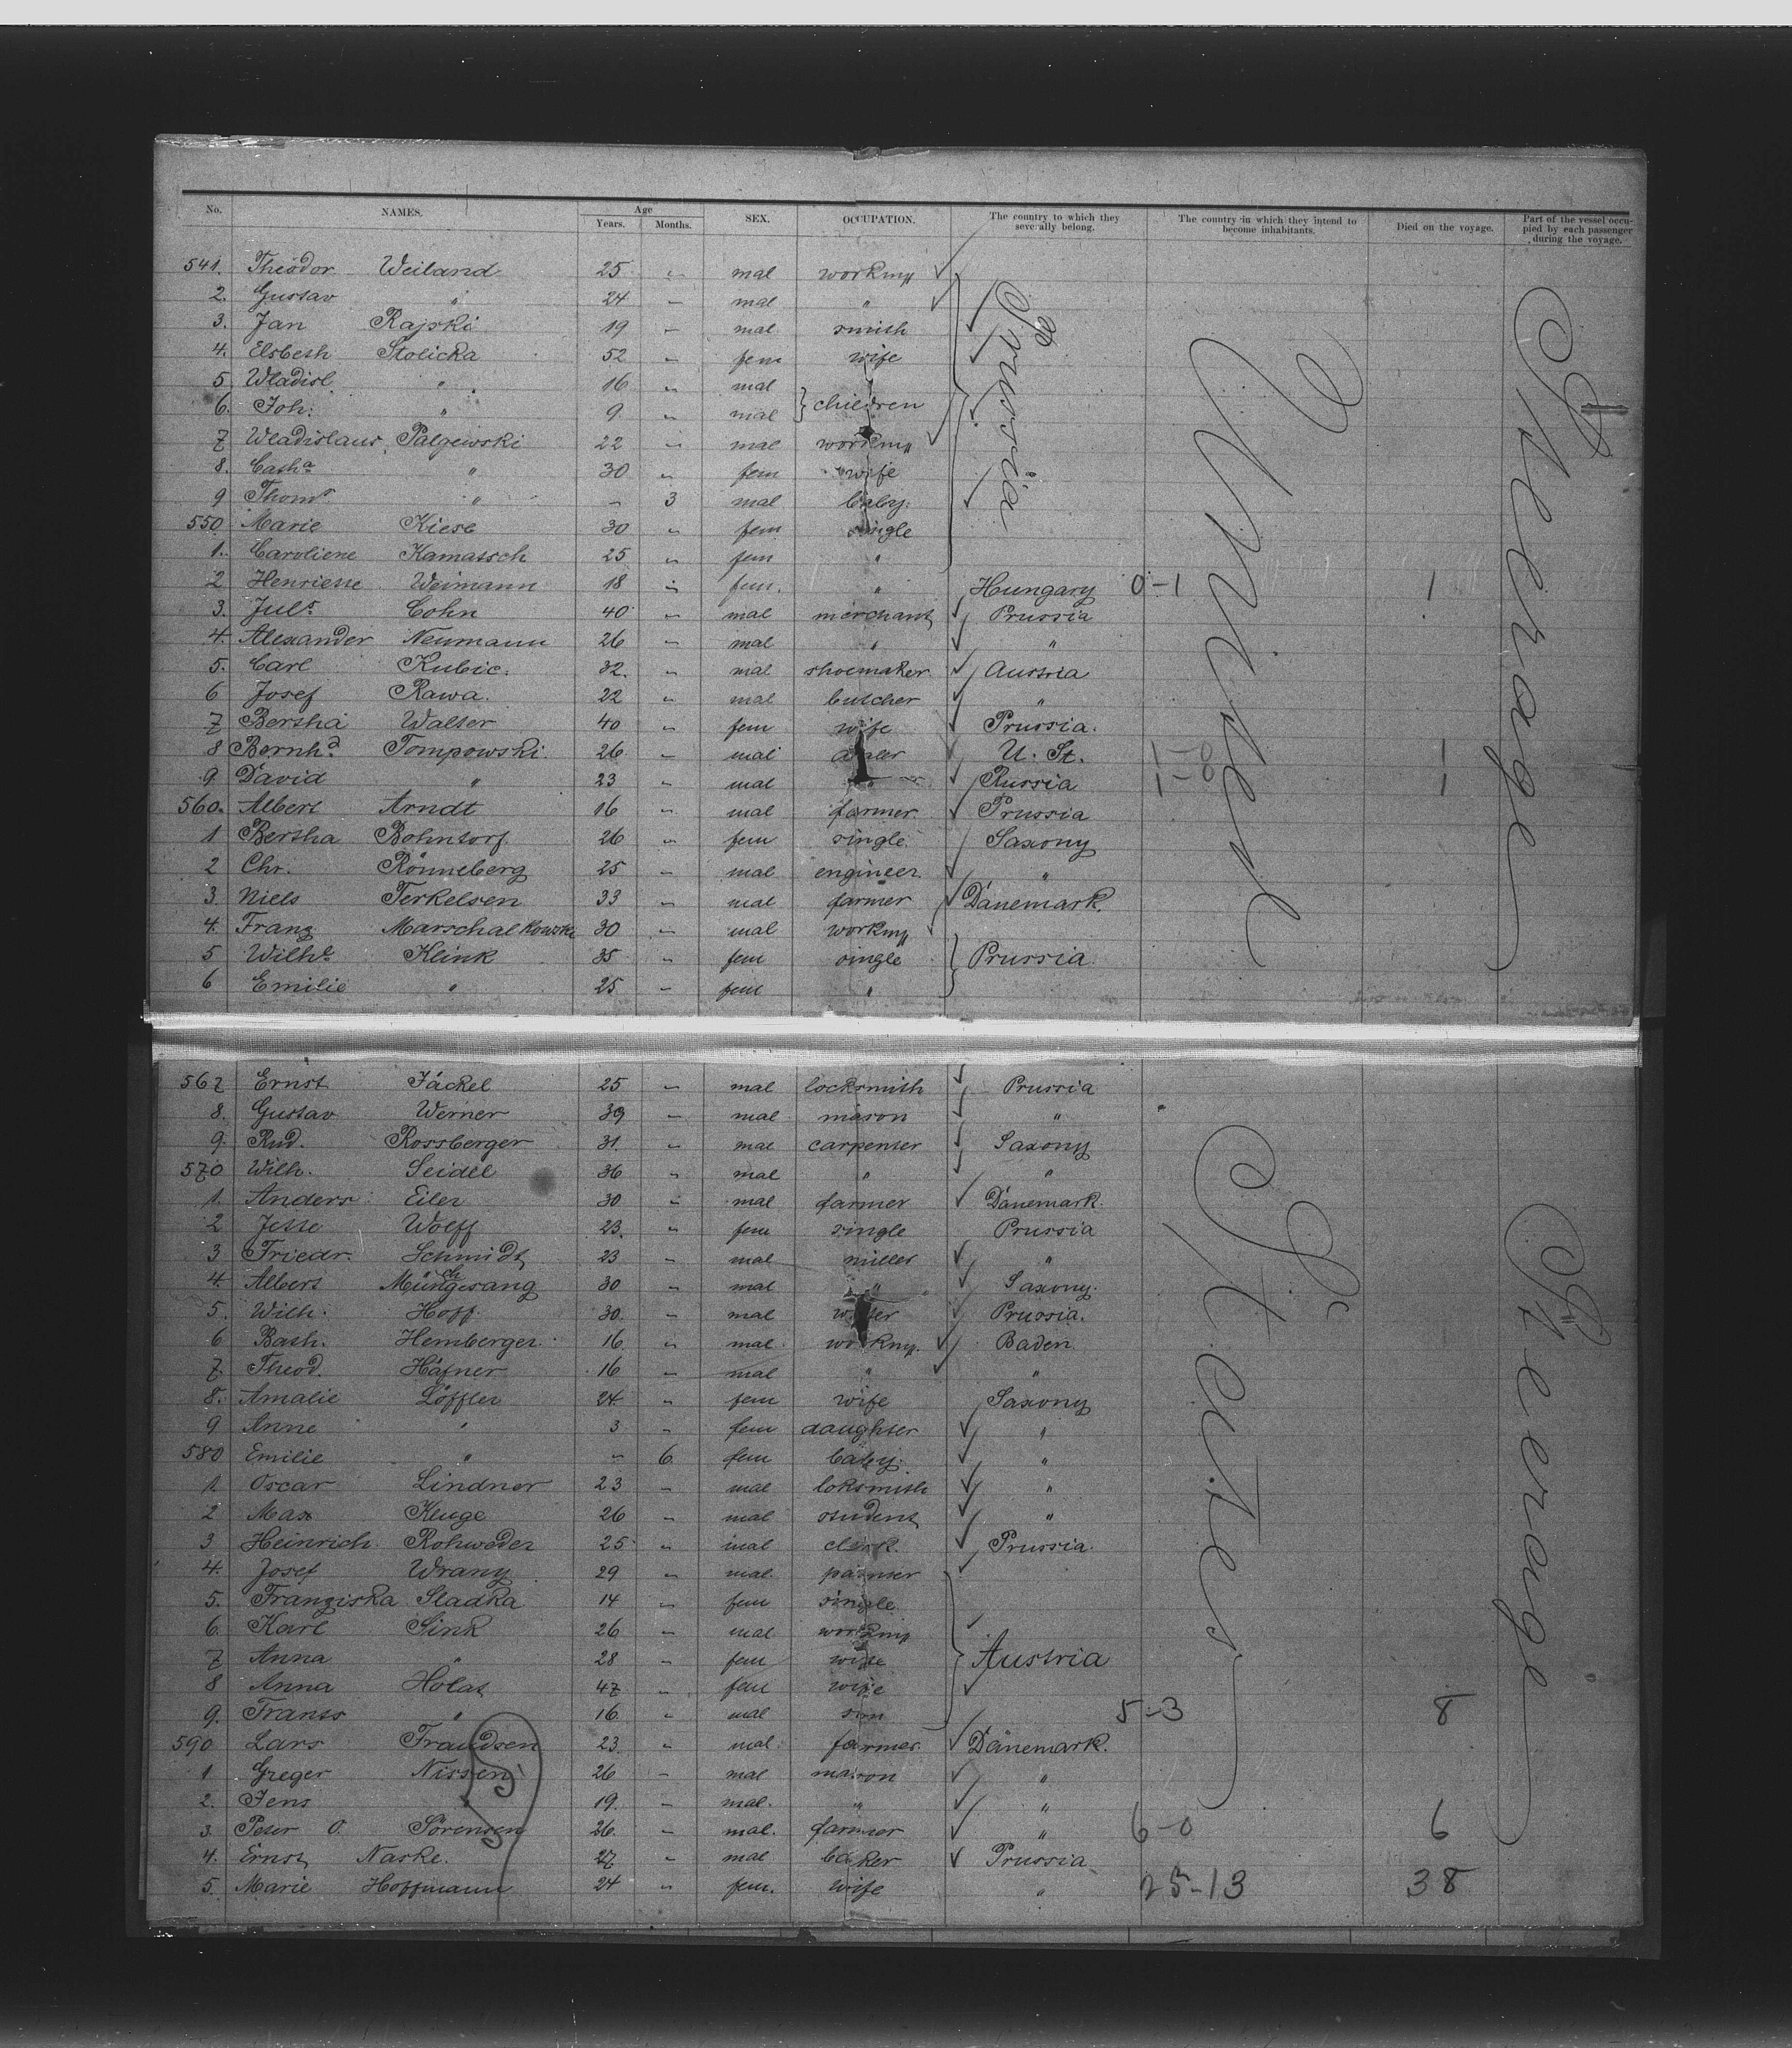 No. NAMES. Age Years. Months. SEX. OCCUPATION. The country to which they severally belong. The country in which they intend to become inhabitants. Died on the voyage. Part of the vessel occupied by each passenger during the voyage.
541. Theodor Weiland 25 " mal workmn
2. Gustav " 24 " mal "
3. Jan Rajski 19 " mal smith
4. Elsbeth Stolicka 52 " fem wife
5 Wladisl. " 16 " mal
6. Joh. " 9 " mal children
7 Wladislaus Palgewski 22 " mal workmn
8. Catha " 30 " fem wife
9 Thoms " " 3 mal baby.
550 Marie Kiese 30 " fem single
1. Caroliene Kamatsch 25 " fem "
Prussia
2 Henriette Weimann 18 " fem. " Hungary 0-1 1
3. Juls Cohn 40 " mal merchant Prussia
4. Alexander Neumann 26 " mal " "
5. Carl Kubic. 32. " mal shoemaker Austria
6 Josef Rawa. 22 " mal butcher "
7 Bertha Walter 40 " fem wife Prussia.
8 Bernhd Tompowski. 26 " mal U. St. 1-0 1
9 David " 23 " mal Russia 1-0 1
560. Albert Arndt 16 " mal farmer Prussia
1 Bertha Bohntorf 26 " fem single Saxony
2 Chr. Rönneberg 25 " mal engineer "
3 Niels Terkelsen 33 " mal farmer Dänemark.
4. Franz Marschalkowski 30 " mal workmn
5 Wilhe Klink 35 " fem single Prussia
6 Emilie " 25 " fem "
United
Steerage
567 Ernst Jäckel 25 " mal locksmith Prussia
8. Gustav Werner 39 " mal mason "
9. Rud. Rossberger 31. " mal carpenter Saxony
570 Wilh. Seidel 36 " mal " "
1. Anders Eiler 30 " mal farmer Dänemark.
2 Jette Wolff 23. " fem single Prussia
3 Friedr. Schmidt 23 " mal miller "
4. Albert Münchgesang 30 " mal " Saxony.
5. Wilh. Hoff. 30. " mal Prussia.
6 Bath. Hemberger. 16 " mal workmn. Baden
7. Theod. Häfner 16 " mal " "
8. Amalie Löffler 24 " fem wife Saxony
9 Anne " 3 " fem daughter "
580 Emilie " " 6 fem baby. "
1. Oscar Lindner 23 " mal loksmith "
2 Max Kluge 26 " mal student "
3 Heinrich Rohweder 25 " mal clerk. Prussia.
4. Josef Wrany 29 " mal painter
5. Franziska Sladka 14 " fem single
6. Karl Sink 26 " mal workmn
7 Anna " 28 " fem wife Austria
8 Anna Holat 47 " fem wife
9. Frantz " 16 " mal son 5-3 8
590 Lars Frandsen 23 " mal farmer Dänemark.
1 Greger Nissen 26 " mal mason "
2. Jens " 19. " mal. " "
3. Peter O. Sörensen 26. " mal. farmer " 6-0 6
4. Ernst Naske. 27 " mal baker Prussia
5. Marie Hoffmann 24 " fem. wife " 25-13 38
States
Steerage